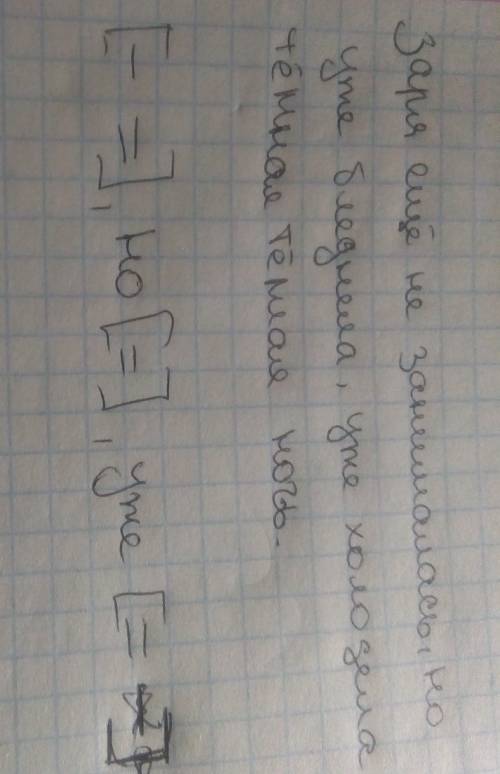 Заря ещё не занималась, но
уже бледнела, уже холодела
тёмная тёмная ночь.
[– =], но [=], уже [=